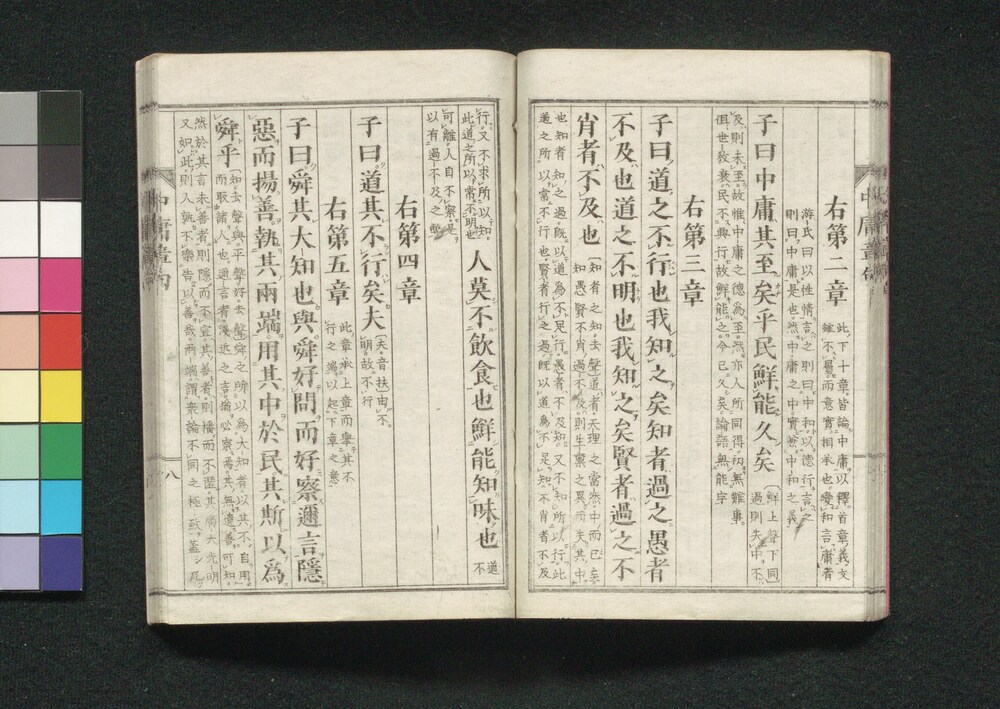 中庸章句
右第二章
此下十章皆論中庸以釋首章義文
雖不屬而意實相承也變和言庸者
游氏曰以性情言之則曰中和以德行言之
則曰中庸是也然中庸之中實兼中和之義
子曰中庸其至矣乎民鮮能久矣
鮮上聲下同
過則失中不
及則未至故惟中庸之德為至然亦人所同得初無難事
但世教衰民不興行故鮮能之今已久矣論語無能字
右第三章
子曰道之不行也我知之矣知者過之愚者
不及也道之不明也我知之矣賢者過之不
肖者不及也
知者之知去聲道者天理之當然中而已矣
知愚賢不肖過不及則生稟之異而失其中
也知者知之過既以道為不足行愚者不及知又不知所以行此
道之所以常不行也賢者行之過既以道為不足知不肖者不及
行又不求所以知
此道之所以常不明也
人莫不飲食也鮮能知味也
道
不
可離人自不察是
以有過不及之弊
右第四章
子曰道其不行矣夫
夫音扶由不
明故不行
右第五章
此章承上章而舉其不
行之端以起下章之意
子曰舜其大知也與舜好問而好察邇言隱
惡而揚善執其兩端用其中於民其斯以爲
舜乎
知去聲與平聲好去聲舜之所以為大知者以其不自用
而取諸人也邇言者淺近之言猶必察焉其無遺善可知
然於其言未善者則隱而不宣其善者則播而不匿其廣大光明
又如此則人孰不樂告以善哉兩端謂衆論不同之極致蓋凡
中庸章句
八